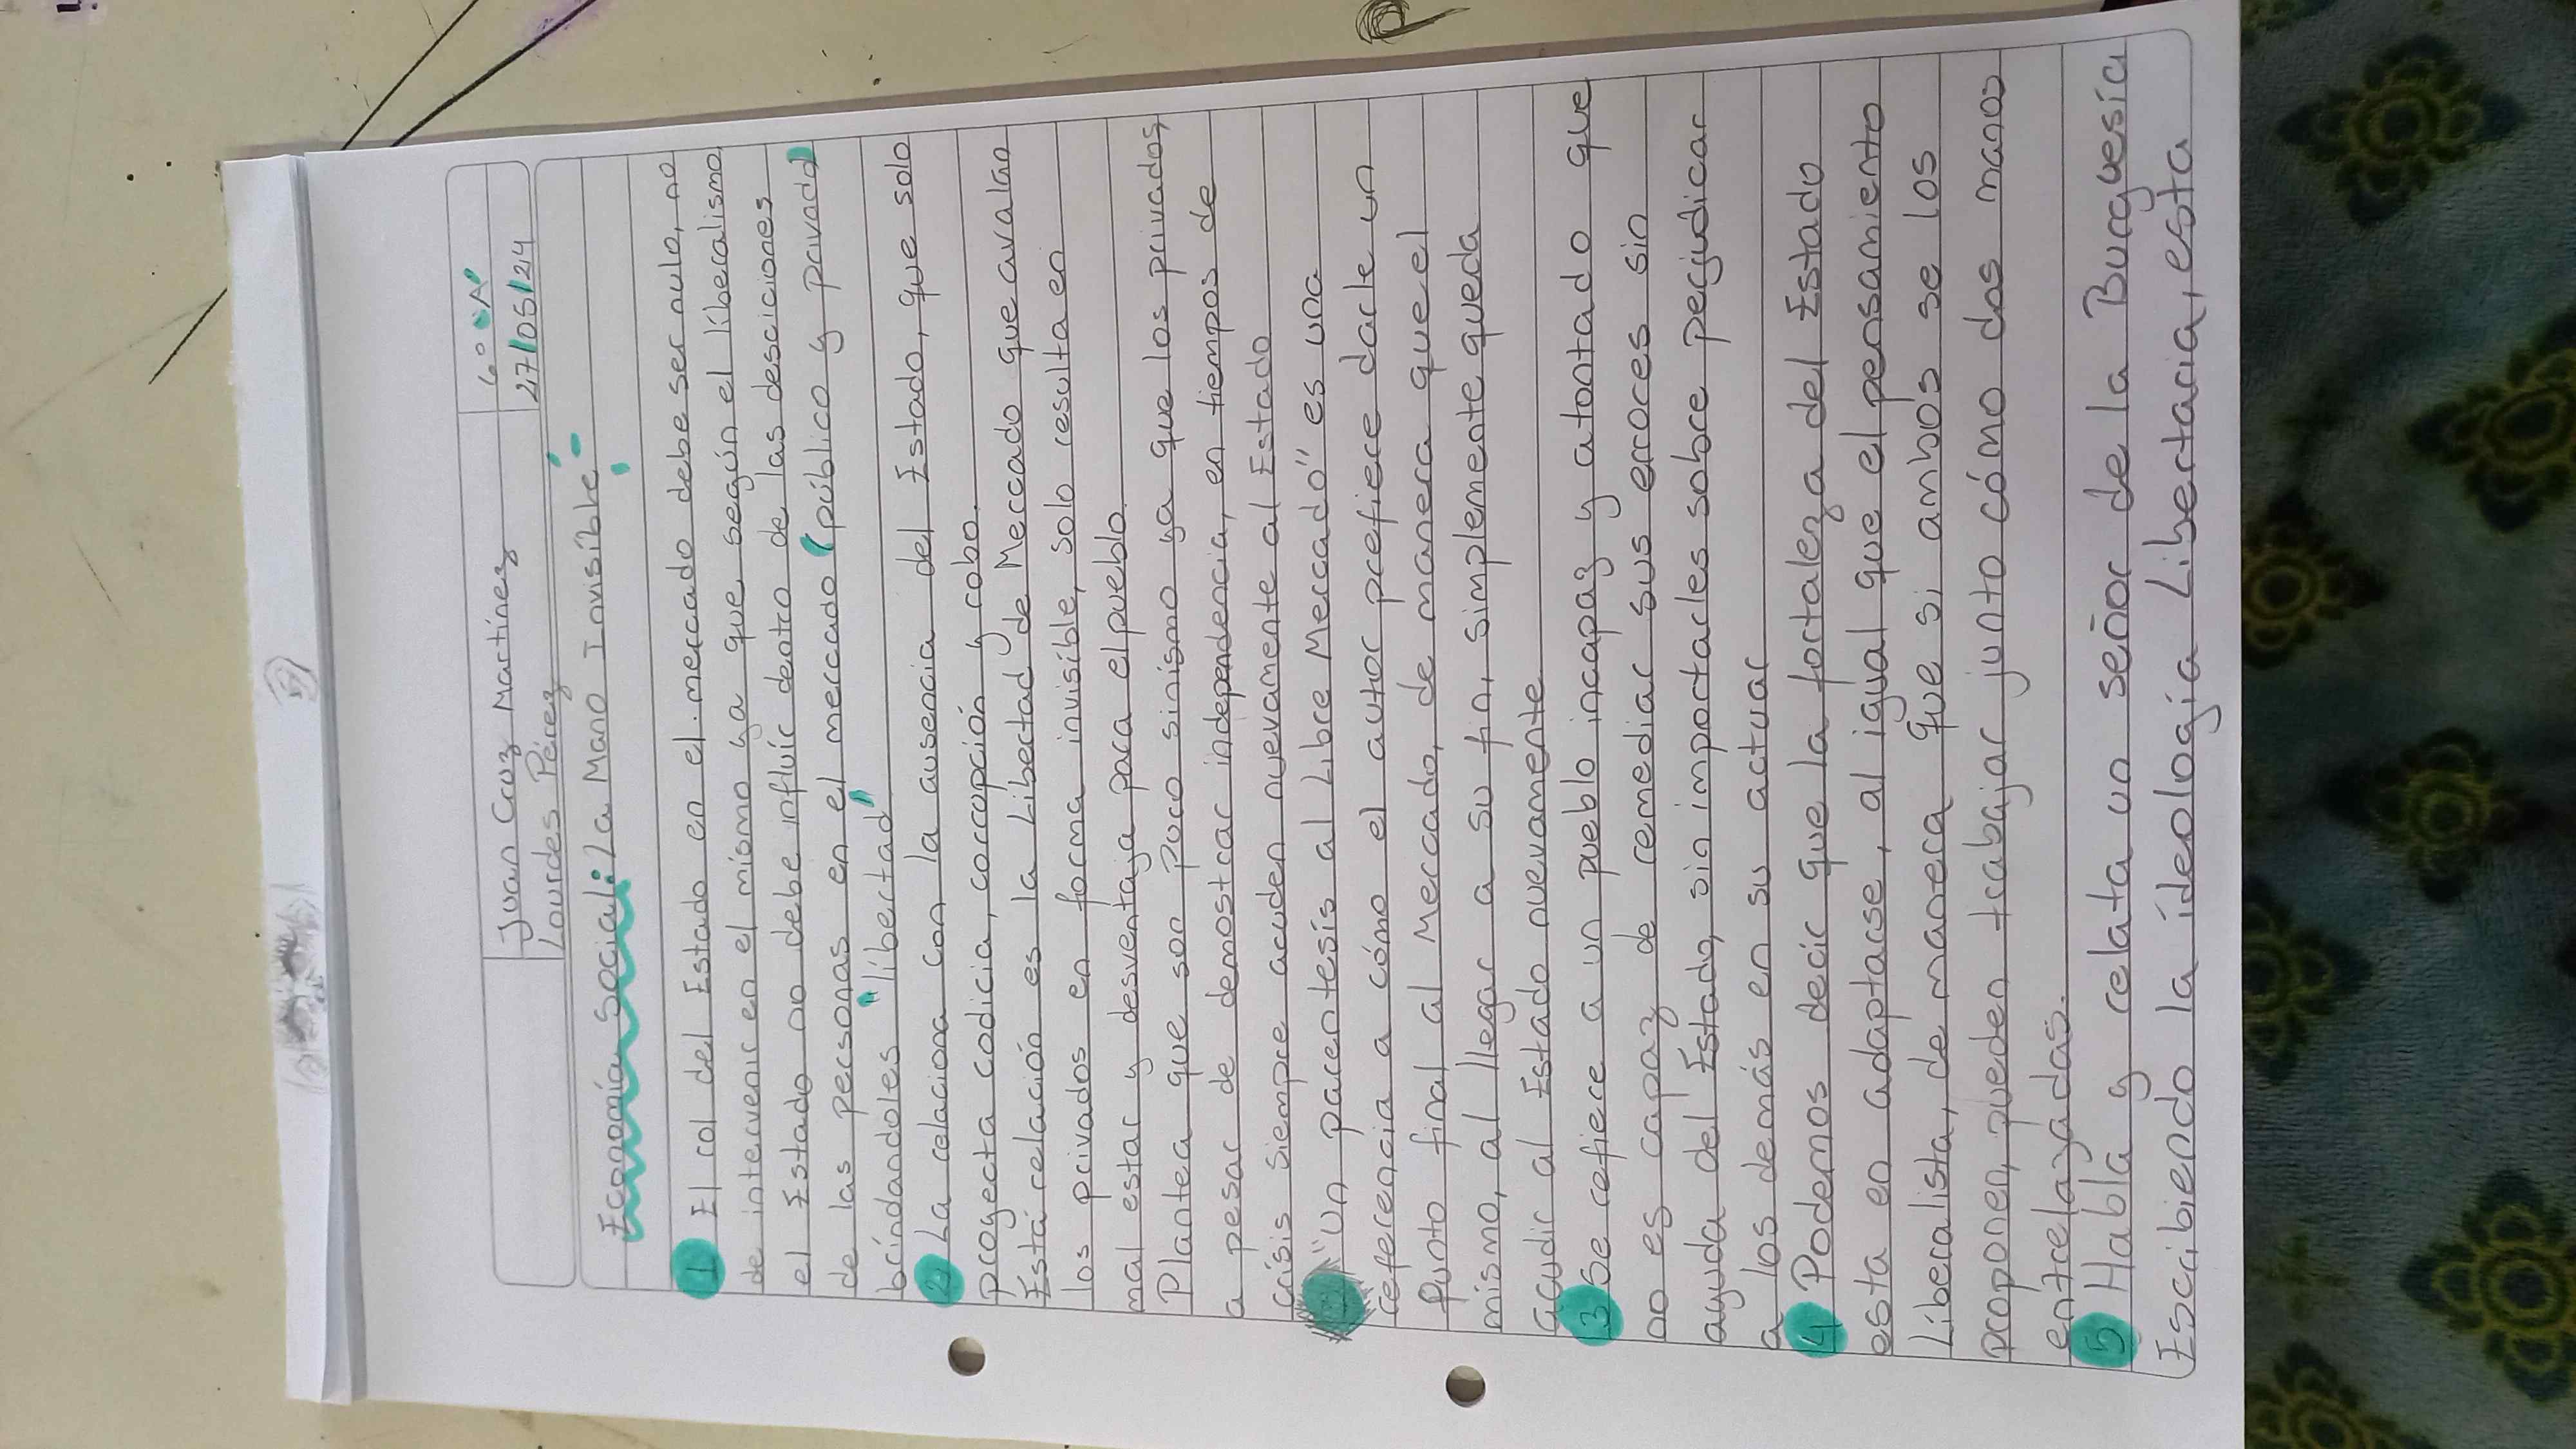 Juan Cruz Martínez 6° "A"
Lourdes Pérez 27/05/24
Economía Social: La Mano Invisible
1 El rol del Estado en el mercado debe ser nulo, no
de intervenir en el mismo ya que según el liberalismo
el Estado no debe influír dentro de las descisiones
de las personas en el mercado (público y privado)
bríndandoles "libertad"
2 La relaciona con la ausencia del Estado, que solo
proyecta codicia, corrupción y robo.
Está relación es la Libertad de Mercado que avalan
los privados en forma invisible, solo resulta en
mal estar y desventaja para el pueblo.
Plantea que son puro sinismo ya que los privados,
a pesar de demostrar independencia, en tiempos de
crísis siempre acuden nuevamente al Estado
"Un parentesís al Libre Mercado" es una
referencia a cómo el autor prefiere darle un
punto final al Mercado, de manera que el
mismo, al llegar a su fin, simplemente queda
acudir al Estado nuevamente
3 Se refiere a un pueblo incapaz y atontado que
no es capaz de remediar sus errores sin
ayuda del Estado, sin importarles sobre perjudicar
a los demás en su actuar
4 Podemos decir que la fortaleza del Estado
esta en adaptarse, al igual que el pensamiento
Liberalista, de manera que si ambos se los
proponen, pueden trabajar junto cómo dos manos
entrelazadas.
5 Habla y relata un señor de la Burguesía
Escribiendo la ídeología Libertaria, esta